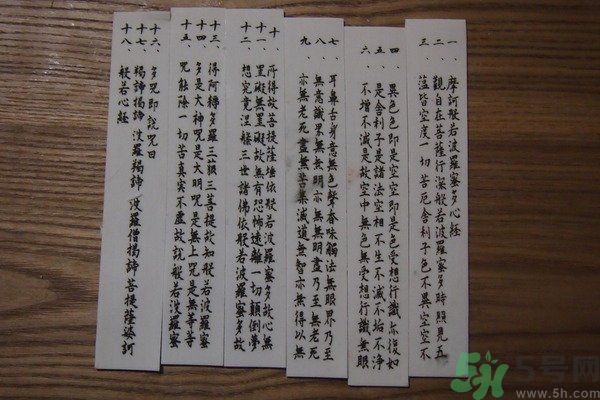 一、摩訶般若波羅蜜多心経
二、觀自在菩薩行深般若波羅蜜多時照見五
三、蘊皆空度一切苦厄舍利子色不異空空不
四、異色色即是空空即是色受想行識亦復如
五、是舍利子是諸法空相不生不滅不垢不淨
六、不增不減是故空中無色無受想行識無眼
七、耳鼻舌身意無色聲香味觸法無眼界乃至
八、無意識界無無明亦無無明盡乃至無老死
九、亦無老死盡無苦集滅道無智亦無得以無
十、所得故菩提薩埵依般若波羅蜜多故心無
十一、罣礙無罣礙故無有恐怖遠離一切顛倒夢
十二、想究竟涅槃三世諸佛依般若波羅蜜多故
十三、得阿耨多羅三藐三菩提故知般若波羅蜜
十四、多是大神咒是大明咒是無上咒是無等等
十五、咒能除一切苦真実不虛故説般若波羅蜜
十六、多咒即説咒曰
十七、羯諦揭諦 波羅羯諦 波羅僧揭諦 菩提薩婆訶
十八、般若心経
5h 5号网
www.5h.com